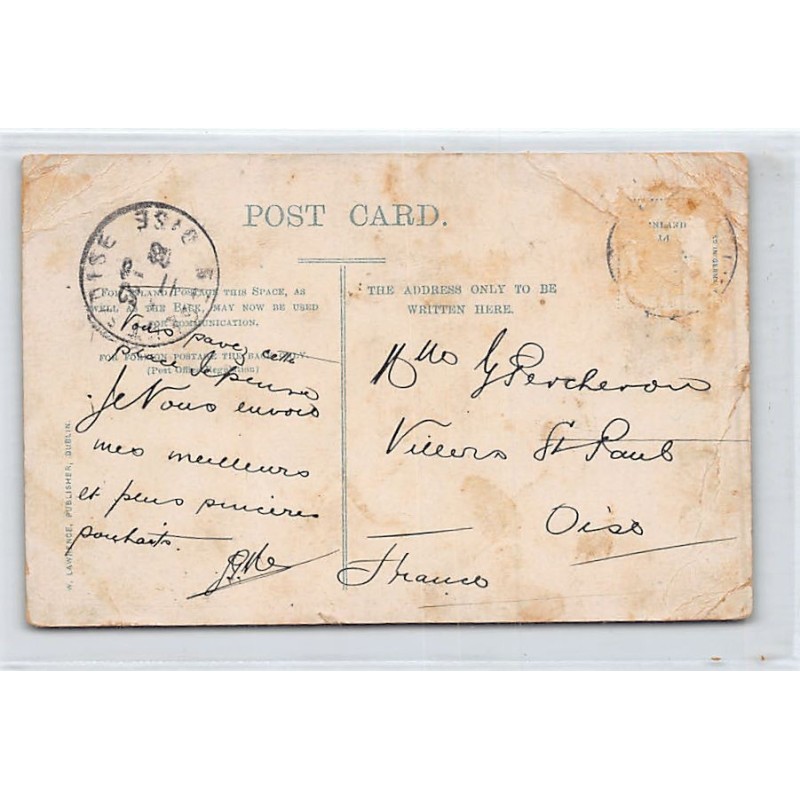 POST CARD.
FOR INLAND POSTAGE THIS SPACE, AS
WELL AS THE BACK, MAY NOW BE USED
FOR COMMUNICATION.
FOR FOREIGN POSTAGE THE BACK ONLY.
(Post Office Regulation)
THE ADDRESS ONLY TO BE
WRITTEN HERE.
Vous pavez cette
place
Je Vous envois
mes meilleurs
et plus sincères
souhaits.
Mlle G Percheron
Villers St Paul
Oise
France
W. LAWRENCE, PUBLISHER, DUBLIN.
OISE
INLAND